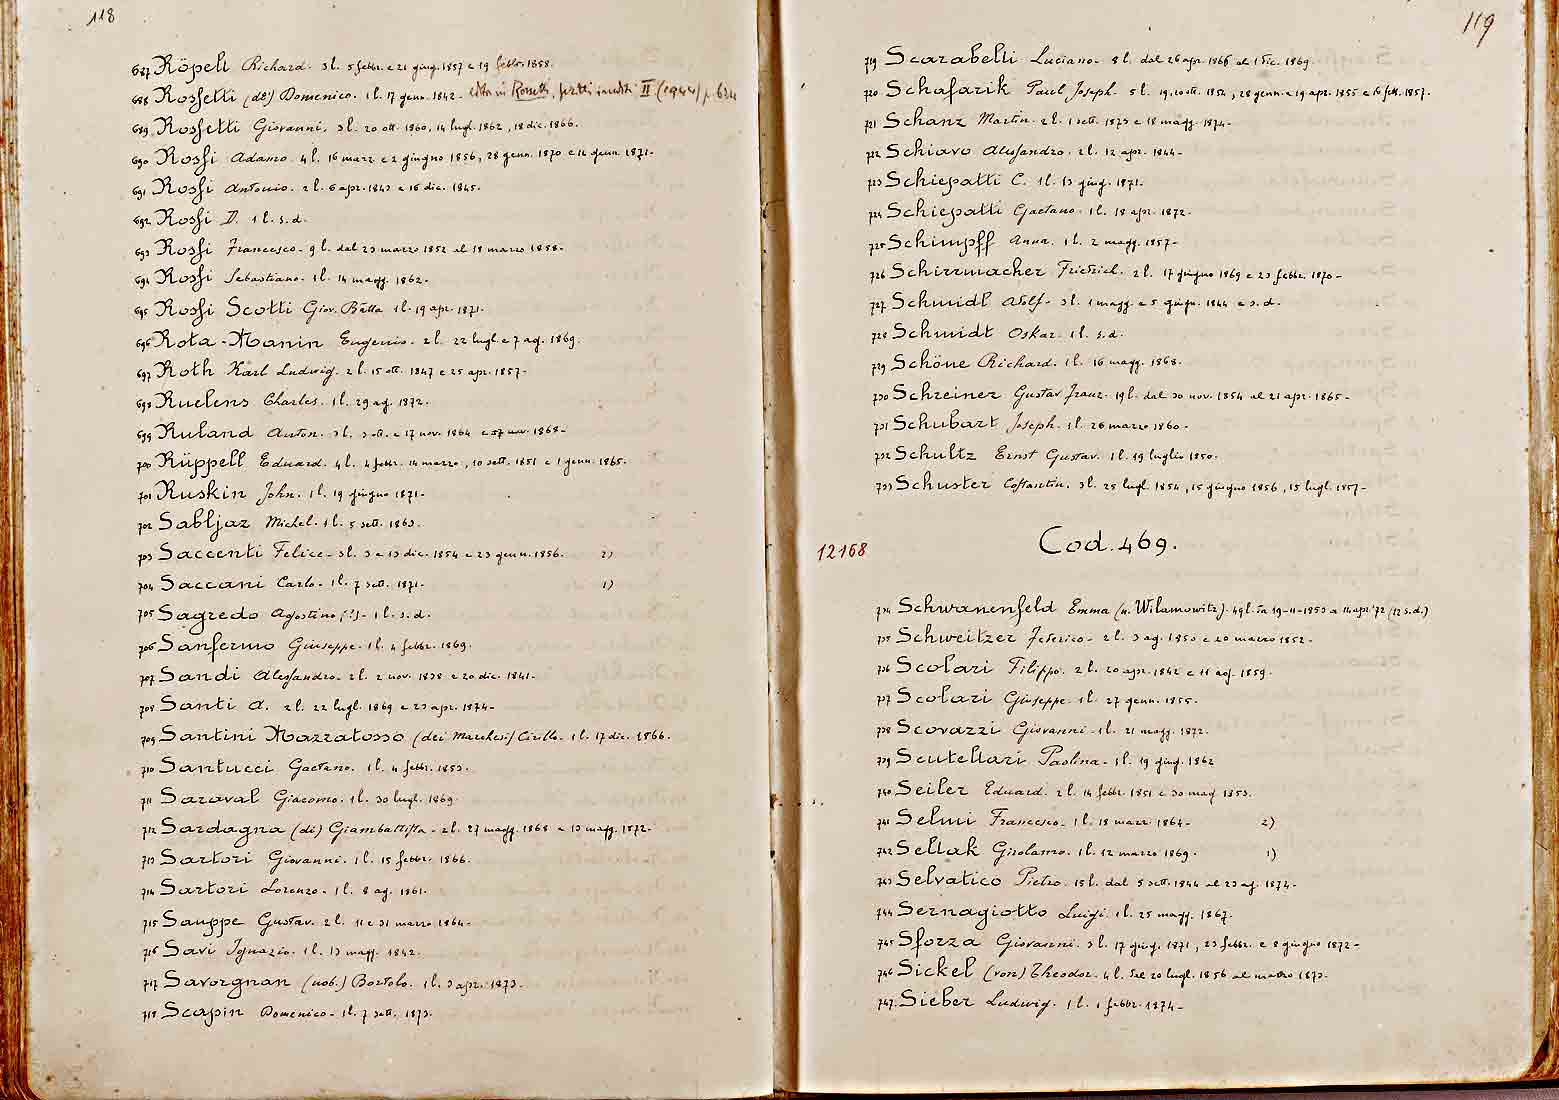 118
687 Röpell Richard. 3 l. 5 febbr. e 21 giug. 1857 e 19 febbr. 1858.
688 Rossetti (de') Domenico. 1 l. 17 genn. 1842. edita in Rossetti, scritti inediti II (1944) p. 634
689 Rossetti Giovanni. 3 l. 20 ott. 1860, 14 lugl. 1862, 18 dic. 1866.
690 Rossi Adamo. 4 l. 16 marz. e 2 giugno 1856, 28 genn. 1870 e 14 genn. 1871.
691 Rossi Antonio. 2 l. 6 apr. 1843 e 16 dic. 1845.
692 Rossi D. 1 l. s.d.
693 Rossi Francesco. 9 l. dal 23 marzo 1852 al 18 marzo 1858.
694 Rossi Sebastiano. 1 l. 14 magg. 1862.
695 Rossi Scotti Giov. Batta 1 l. 19 apr. 1871.
696 Rota-Manin Eugenio. 2 l. 22 lugl. e 7 ag. 1869.
697 Roth Karl Ludwig. 2 l. 15 ott. 1847 e 25 apr. 1857.
698 Ruelens Charles. 1 l. 29 ag. 1872.
699 Ruland Anton. 3 l. 3 ott. e 17 nov. 1864 e 27 nov. 1868.
700 Rüppell Eduard. 4 l. 4 febbr. 14 marzo, 10 sett. 1851 e 1 genn. 1865.
701 Ruskin John. 1 l. 19 giugno 1871.
702 Sabljaz Michel. 1 l. 5 sett. 1863.
703 Saccenti Felice. 3 l. 3 e 13 dic. 1854 e 23 genn. 1856. 2)
704 Saccani Carlo. 1 l. 7 sett. 1871. 1)
705 Sagredo Agostino (?). 1 l. s.d.
706 Sanfermo Giuseppe. 1 l. 4 febbr. 1869.
707 Sandi Alessandro. 2 l. 2 nov. 1838 e 20 dic. 1841.
708 Santi A. 2 l. 22 lugl. 1869 e 23 apr. 1874.
709 Santini Mazzatosso (dei Marchesi) Cirillo. 1 l. 17 dic. 1866.
710 Santucci Gaetano. 1 l. 4 febbr. 1853.
711 Saraval Giacomo. 1 l. 30 lugl. 1869.
712 Sardagna (di) Giambattista. 2 l. 27 magg. 1868 e 13 magg. 1872.
713 Sartori Giovanni. 1 l. 15 febbr. 1866.
714 Sartori Lorenzo. 1 l. 8 ag. 1861.
715 Sauppe Gustav. 2 l. 11 e 31 marzo 1864.
716 Savi Ignazio. 1 l. 13 magg. 1842.
717 Savorgnan (nob.) Bortolo. 1 l. 3 apr. 1873.
718 Scapin Domenico. 1 l. 7 sett. 1873.
119
719 Scarabelli Luciano. 8 l. dal 26 apr. 1866 al 1 dic. 1869.
720 Schafarik Paul Joseph. 5 l. 19, 20 ott. 1854, 28 genn. e 19 apr. 1855 e 16 sett. 1857.
721 Schanz Martin. 2 l. 1 sett. 1873 e 18 magg. 1874.
722 Schiavo Alessandro. 2 l. 12 apr. 1844.
723 Schiepatti C. 1 l. 13 giug. 1871.
724 Schiepatti Gaetano. 1 l. 18 apr. 1872.
725 Schimpff Anna. 1 l. 2 magg. 1857.
726 Schirrmacher Friedrich. 2 l. 17 giugno 1869 e 23 febbr. 1870.
727 Schmidl Adolf. 3 l. 1 magg. e 5 giugn. 1844 e s.d.
728 Schmidt Oskar. 1 l. s.d.
729 Schöne Richard. 1 l. 16 magg. 1868.
730 Schreiner Gustav Franz. 19 l. dal 30 nov. 1854 al 21 apr. 1865.
731 Schubart Joseph. 1 l. 26 marzo 1860.
732 Schultz Ernst Gustav. 1 l. 19 luglio 1850.
733 Schuster Costantin. 3 l. 25 lugl. 1854, 15 giugno 1856, 15 lugl. 1857.
12168 Cod. 469.
734 Schwanenfeld Emma (n. Wilamowitz). 49 l. da 19-11-1853 a 14 apr. '72 (12 s.d.)
735 Schweitzer Federico. 2 l. 3 ag. 1850 e 20 marzo 1852.
736 Scolari Filippo. 2 l. 20 apr. 1842 e 11 ag. 1859.
737 Scolari Giuseppe. 1 l. 27 genn. 1855.
738 Scovazzi Giovanni. 1 l. 21 magg. 1872.
739 Scutellari Paolina. 1 l. 19 giug. 1862
740 Seiler Eduard. 2 l. 14 febbr. 1851 e 30 mag. 1853.
741 Selmi Francesco. 1 l. 18 marz. 1864. 2)
742 Sellak Girolamo. 1 l. 12 marzo 1869. 1)
743 Selvatico Pietro. 15 l. dal 5 sett. 1844 al 23 ag. 1874.
744 Sernagiotto Luigi. 1 l. 25 magg. 1867.
745 Sforza Giovanni. 3 l. 17 giug. 1871, 23 febbr. e 8 giugno 1872.
746 Sickel (von) Theodor. 4 l. dal 20 lugl. 1856 al marzo 1873.
747 Sieber Ludwig. 1 l. 1 febbr. 1874.